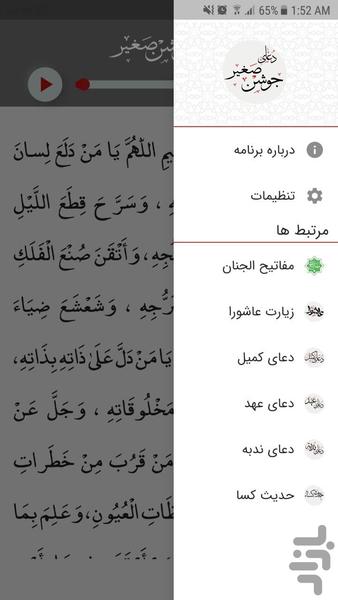 1:52 AM
جوشن صغیر
دعای
جوشن صغیر
درباره برنامه
تنظیمات
مرتبط ها
مفاتیح الجنان
زیارت عاشورا
دعای کمیل
دعای عهد
دعای ندبه
حدیث کسا
اَللّٰهُمَّ يَا مَنْ دَلَعَ لِسانَ
، وَسَرَّحَ قِطَعَ اللَّيْلِ
وَأَتْقَنَ صُنْعَ الْفَلَكِ
، وَشَعْشَعَ ضِيَاءَ
يَا مَنْ دَلَّ عَلىٰ ذاتِهِ بِذاتِهِ،
مَخْلُوقاتِهِ ، وَجَلَّ عَنْ
مَنْ قَرُبَ مِنْ خَطَراتِ
الْعُيُونِ، وَعَلِمَ بِمَا
بازار